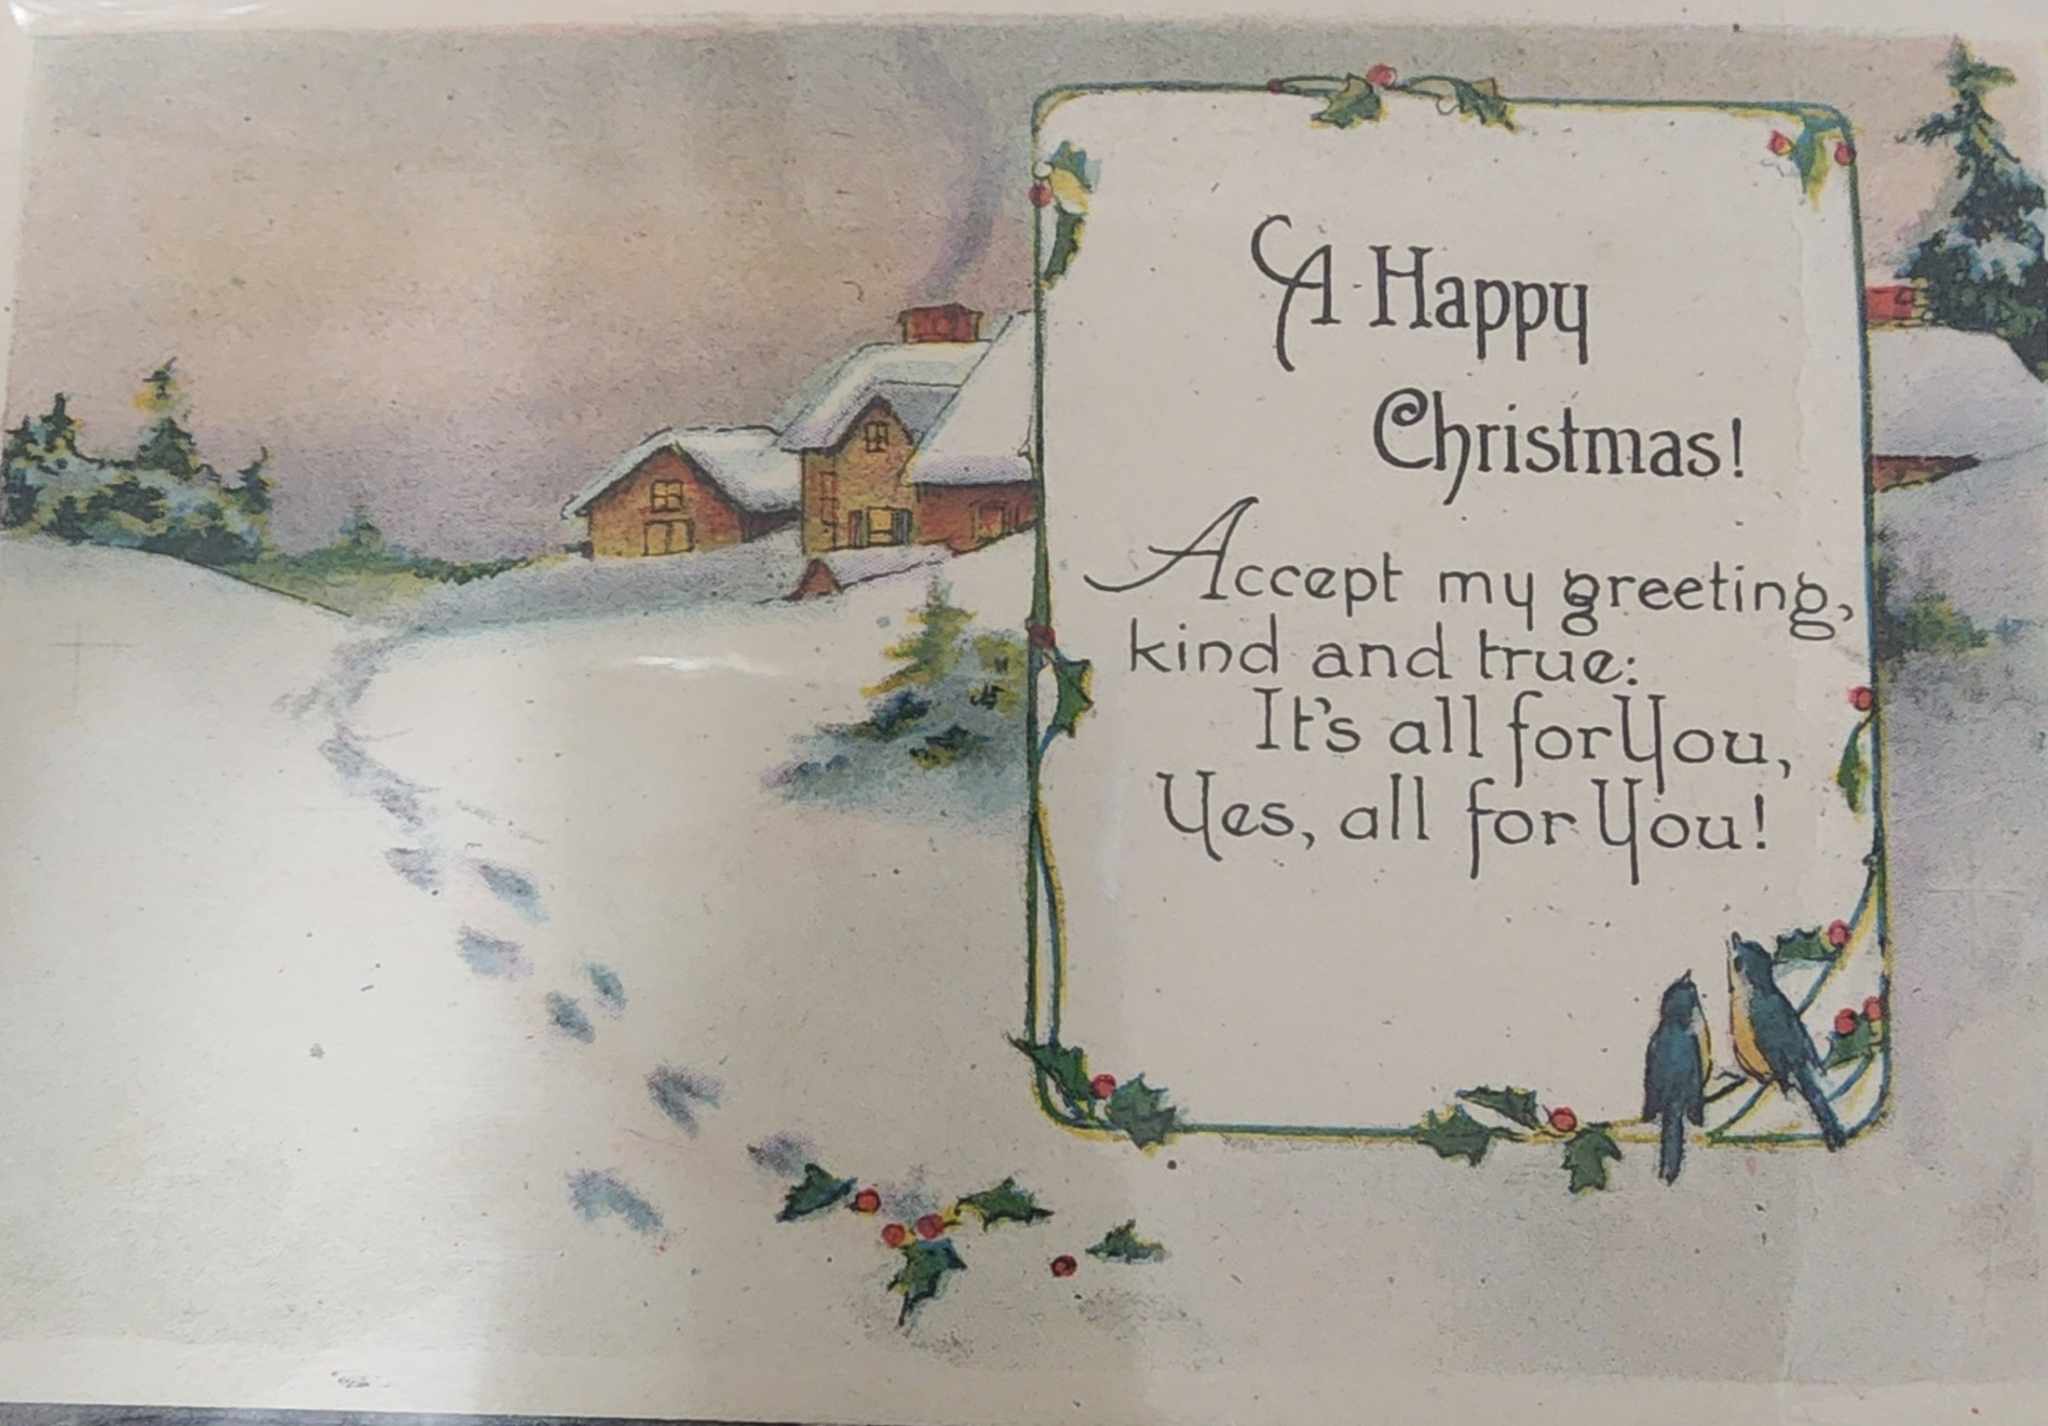 A Happy
Christmas!
Accept my greeting,
kind and true:
It's all for You,
Yes, all for You!